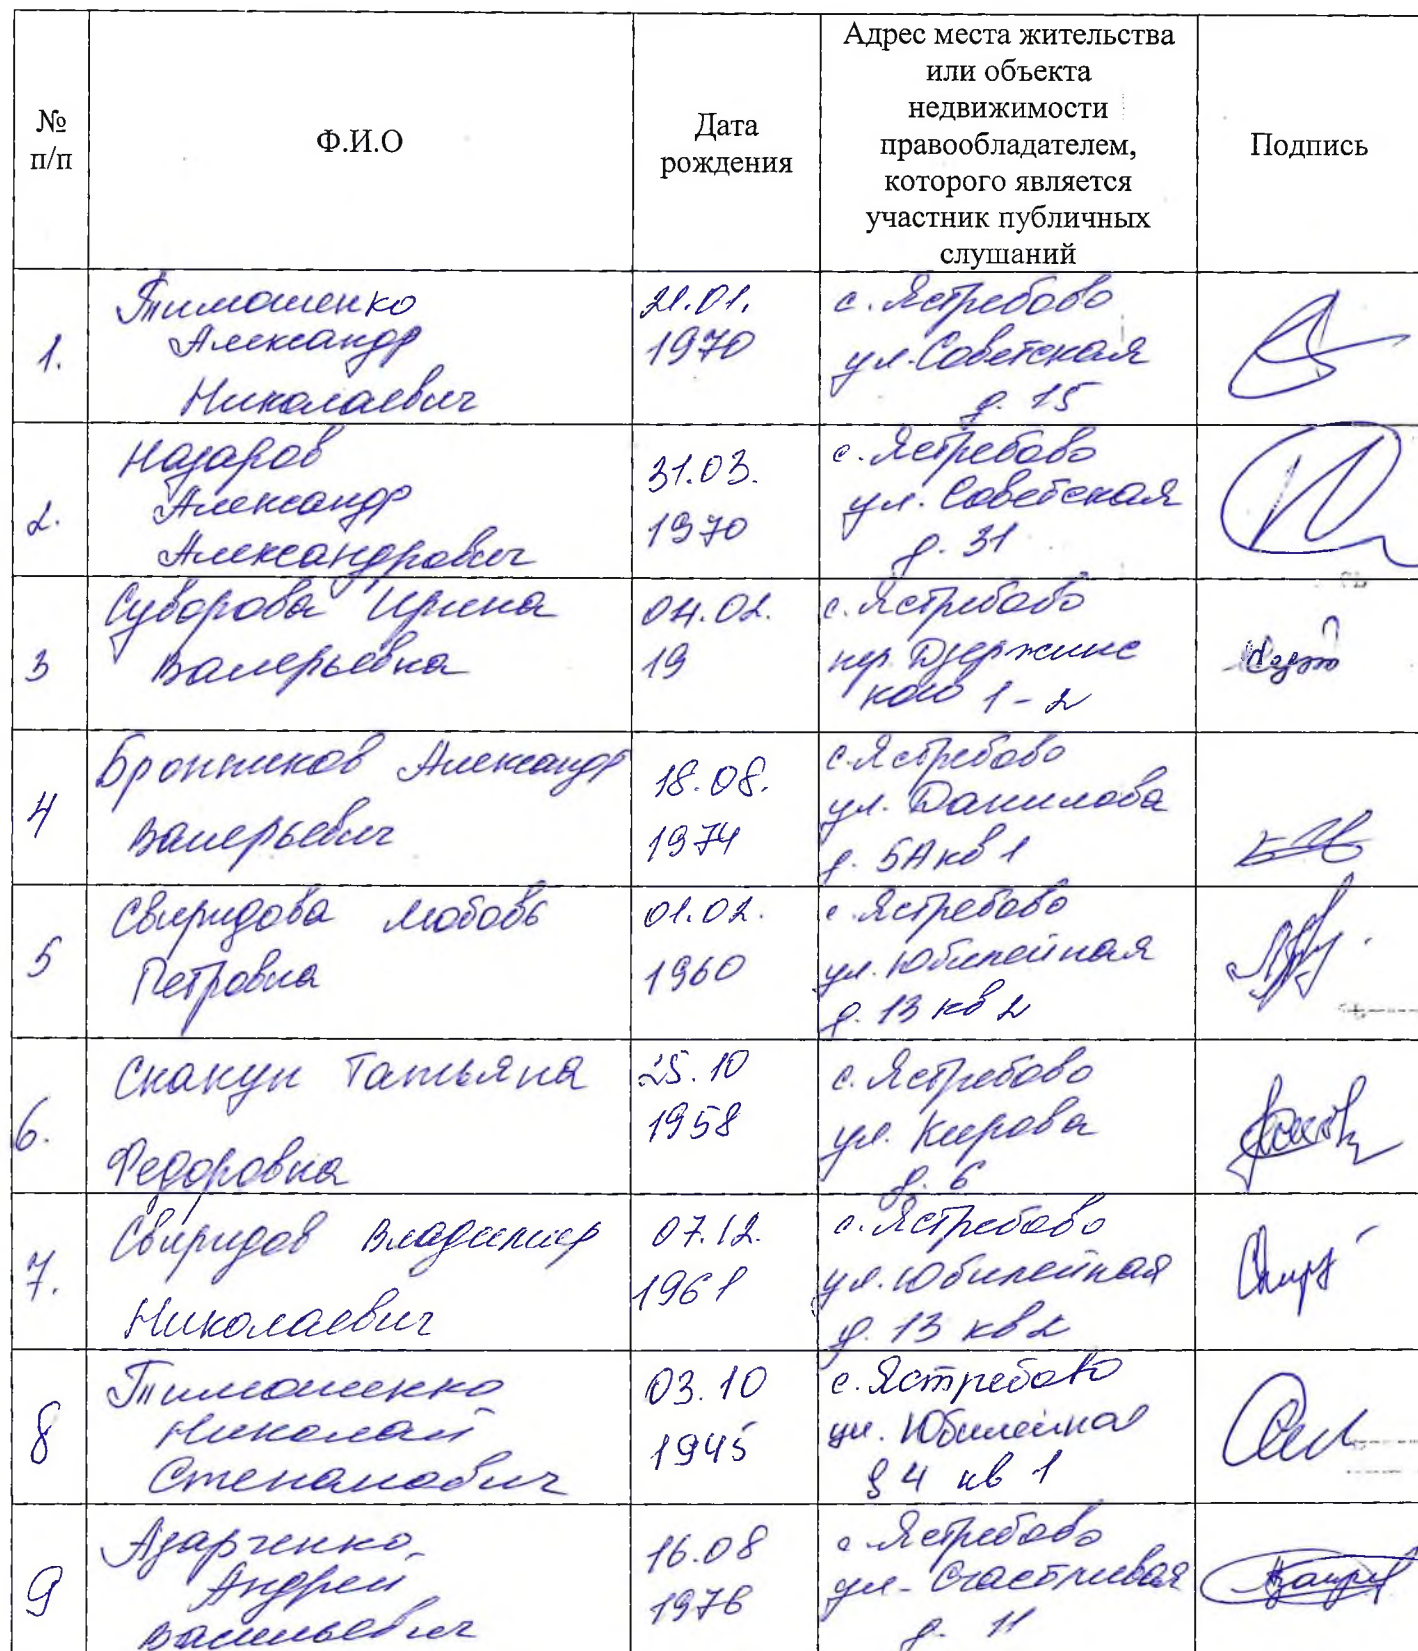 № п/п
Ф.И.О
Дата рождения
Адрес места жительства
или объекта
недвижимости
правообладателем,
которого является
участник публичных
слушаний
Подпись
1.
Тимошенко
Александр
Николаевич
21.01.
1970
с. Ястребово
ул. Советская
д. 15
2.
Назаров
Александр
Александрович
31.03.
1970
с. Ястребово
ул. Советская
д. 31
3
Суворова Ирина
Валерьевна
04.02.
19
с. Ястребово
пер. Дзержинс
кого 1-2
4
Бронников Александр
Валерьевич
18.08.
1974
с. Ястребово
ул. Данилова
д. 5А кв 1
5
Свиридова Любовь
Петровна
01.02.
1960
с. Ястребово
ул. Юбилейная
д. 13 кв 2
6.
Скакун Татьяна
Федоровна
25.10
1958
с. Ястребово
ул. Кирова
д. 6
7.
Свиридов Владимир
Николаевич
07.12.
1961
с. Ястребово
ул. Юбилейная
д. 13 кв 2
8
Тимошенко
Николай
Степанович
03.10
1945
с. Ястребово
ул. Юбилейная
д 4 кв 1
9
Азарченко
Андрей
Васильевич
16.08
1976
с. Ястребово
ул. Счастливая
д. 11